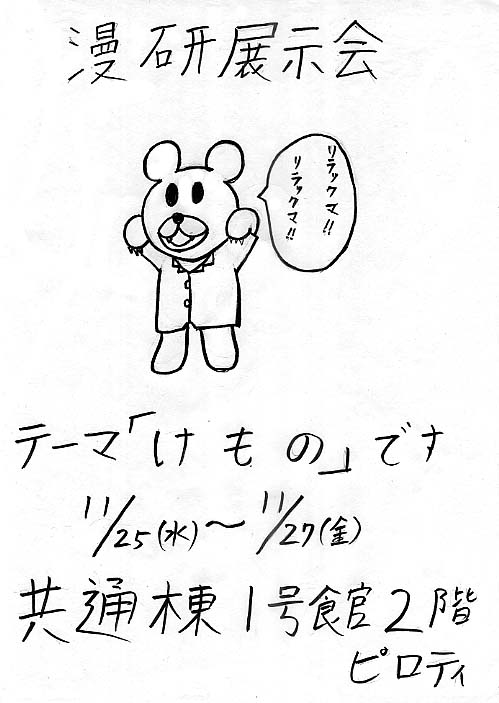 漫研展示会
リラックマ!!
リラックマ!!
テーマ「けもの」です
11/25(水)～11/27(金)
共通棟1号館2階
ピロティ